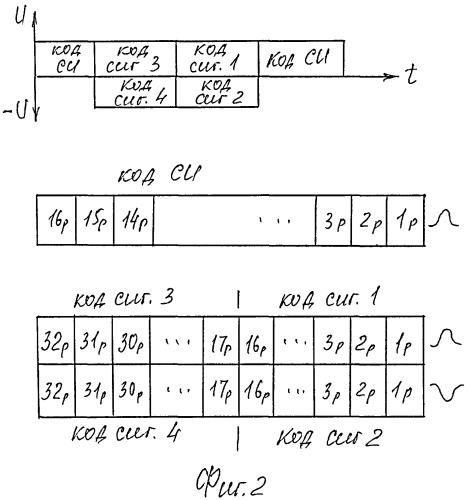 U
код СИ код сиг 3 код сиг. 1 код СИ
t
-U
код сиг. 4 код сиг 2
код СИ
16р 15р 14р ... 3р 2р 1р
код сиг. 3 | код сиг. 1
32р 31р 30р ... 17р 16р ... 3р 2р 1р
32р 31р 30р ... 17р 16р ... 3р 2р 1р
код сиг. 4 | код сиг 2
Фиг. 2